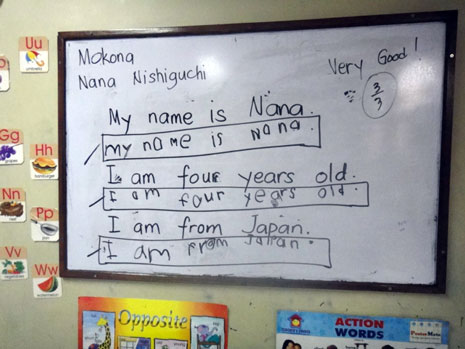 Mokona
Nana Nishiguchi
Very Good!
3
3
My name is Nana.
my name is Nana.
I am four years old.
I am four years old.
I am from Japan.
I am from Japan.
Uu
Gg
Hh
Nn
Pp
Vv
Ww
Opposite
ACTION
WORDS